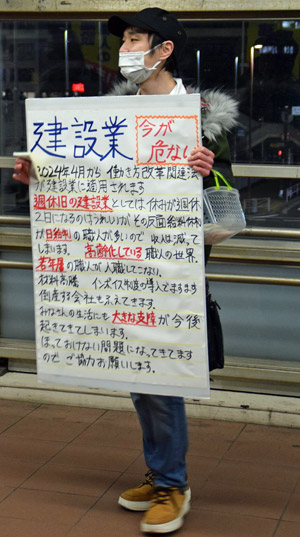 建設業
今が
危ない
2024年4月から 働き方改革関連法
が建設業に適用されます
週休1日の建設業としては 休みが週休
2日になるのはうれしいがその反面給料体制
が日給制の職人が多いので 収入は減って
しまいます。高齢化している職人の世界、
若年層の職人が入職してこない。
材料高騰 インボイス制度の導入でますます
倒産する会社もふえてきます。
みなさんの生活にも大きな支障が今後
起きてきてしまいます。
ほっておけない問題になってきてます
ので ご協力お願いします。